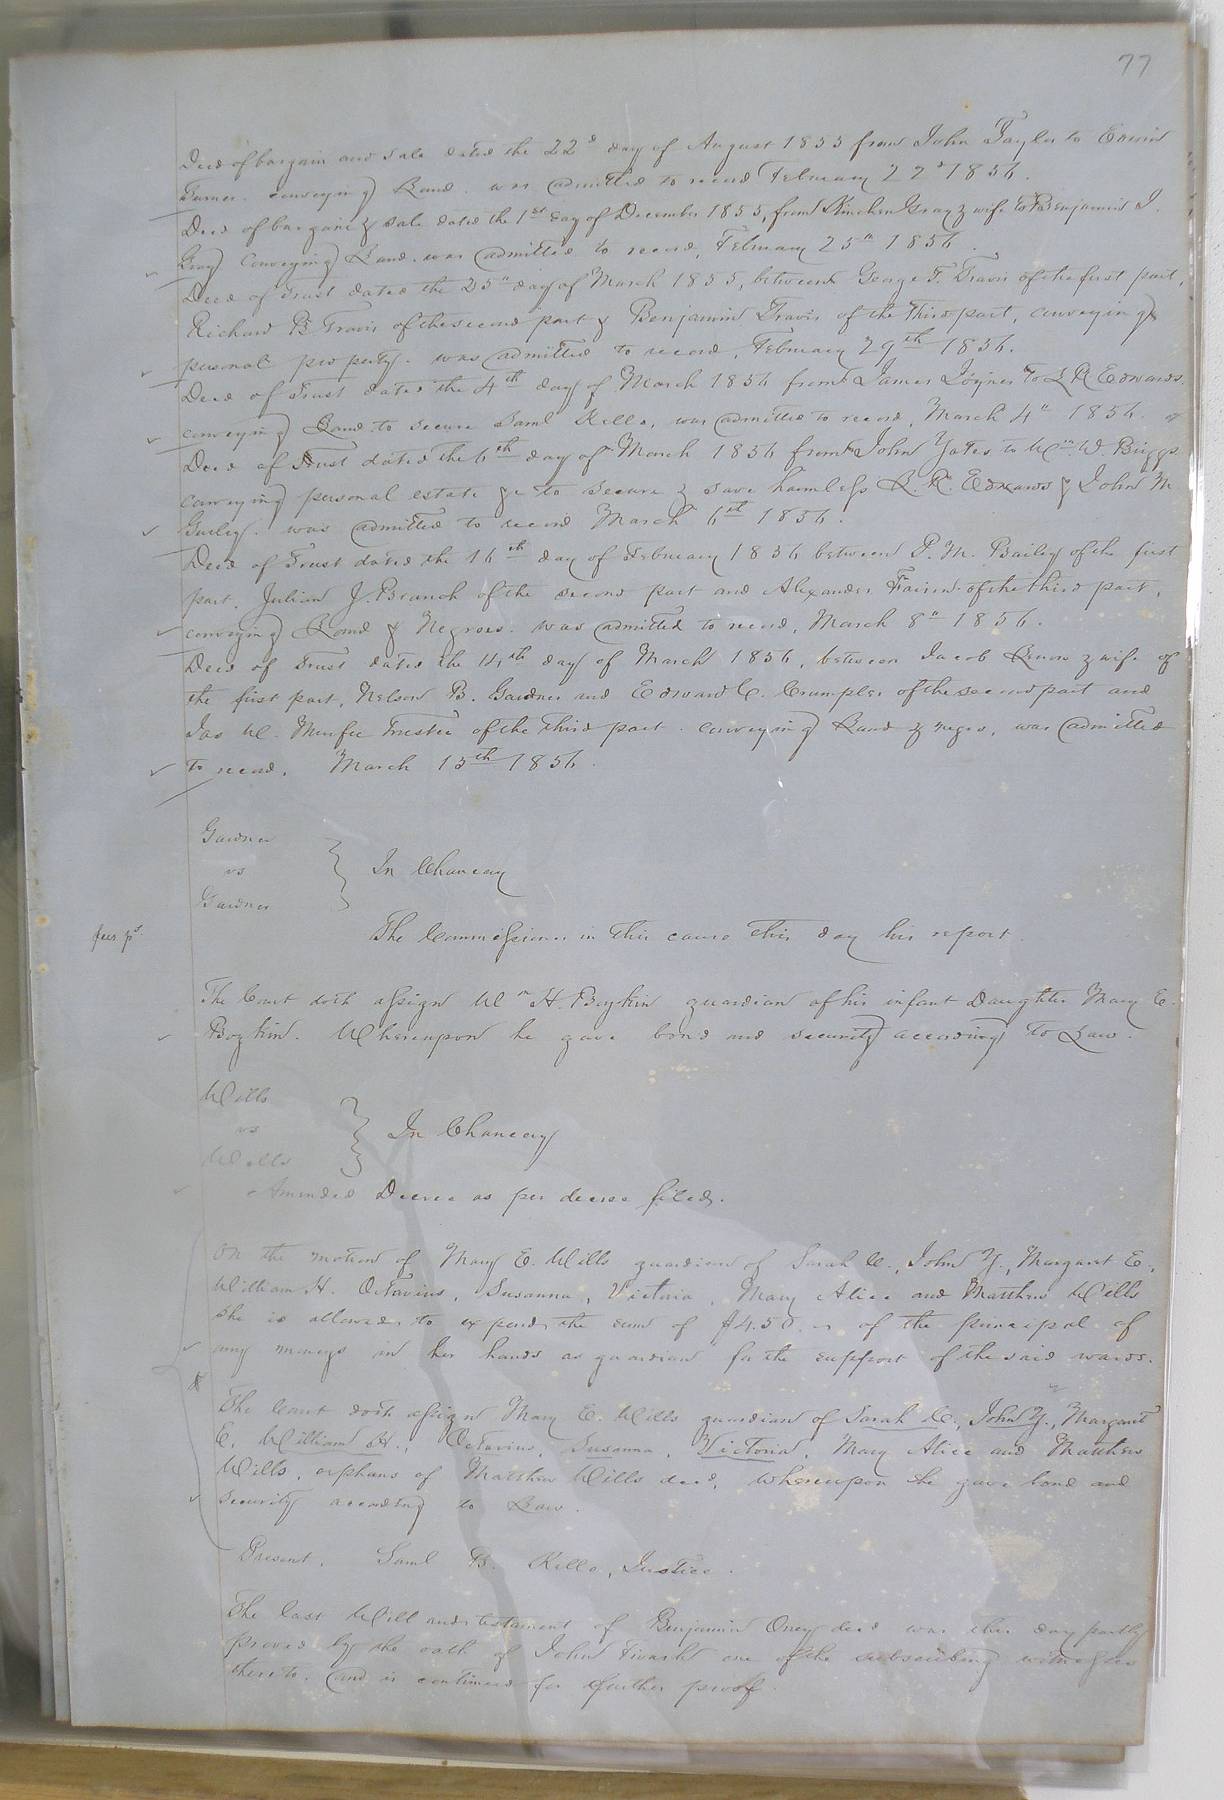 77
Deed of bargain and sale dated the 22d day of August 1855 from John Taylor to Edwin
Turner. conveying Land. was admitted to record February 22d 1856.
Deed of bargain & sale dated the 1st day of December 1855, from Kinchen Gray & wife to Benjamin J.
Gray Conveying Land. was admitted to record, February 25th 1856.
Deed of Trust dated the 25th day of March 1855, between George T. Travis of the first part,
Richard B Travis of the second part & Benjamin Travis of the third part, conveying
personal property. was admitted to record, February 29th 1856.
Deed of Trust dated the 4th day of March 1856 from James Joyner to L R Edwards
conveying Land to secure Saml Kello, was admitted to record, March 4th 1856.
Deed of Trust dated the 6th day of March 1856 from John Yates to Wm. W. Briggs
conveying personal estate &c to secure & save harmless L. R. Edwards & John M
Gurley. was admitted to record March 6th 1856.
Deed of Trust dated the 16th day of February 1856 between P. M. Bailey of the first
part. Julian J. Branch of the second part and Alexander of the third part,
conveying Land & Negroes. was admitted to record, March 8th 1856.
Deed of Trust dated the 14th day of March 1856, between Jacob & wife of
the first part, Nelson B. Gardner and Edward C. Crumpler of the second part and
Jas W. Murfee Trustee of the third part. conveying Land & negro, was admitted
to record. March 15th 1856.
Gardner
vs
Gardner
In Chancery
fees pd.
The Commissioner in this cause this day his report.
The Court doth assign Wm H. Boykin guardian of his infant Daughter Mary E.
Boykin. Whereupon he gave bond and security according to Law.
Wills
vs
Wills
In Chancery
Amended Decree as per decree filed.
On the motion of Mary E. Wills guardian of Sarah C., John Y., Margaret E.,
William H. Octavius, Susanna, Victoria, Mary Alice and Matthew Wills
she is allowed to expend the sum of $450. of the principal of
any moneys in her hands as guardian for the support of the said wards.
The Court doth assign Mary E. Wills guardian of Sarah C., John Y., Margaret
E. William H., Octavius, Susanna, Victoria, Mary Alice and Matthew
Wills, orphans of Matthew Wills decd, whereupon she gave bond and
security according to Law.
Present. Saml B. Kello, Justice.
The last Will and testament of Benjamin Oney decd was this day partly
proved by the oath of John one of the subscribing witnesses
thereto. and is continued for further proof.